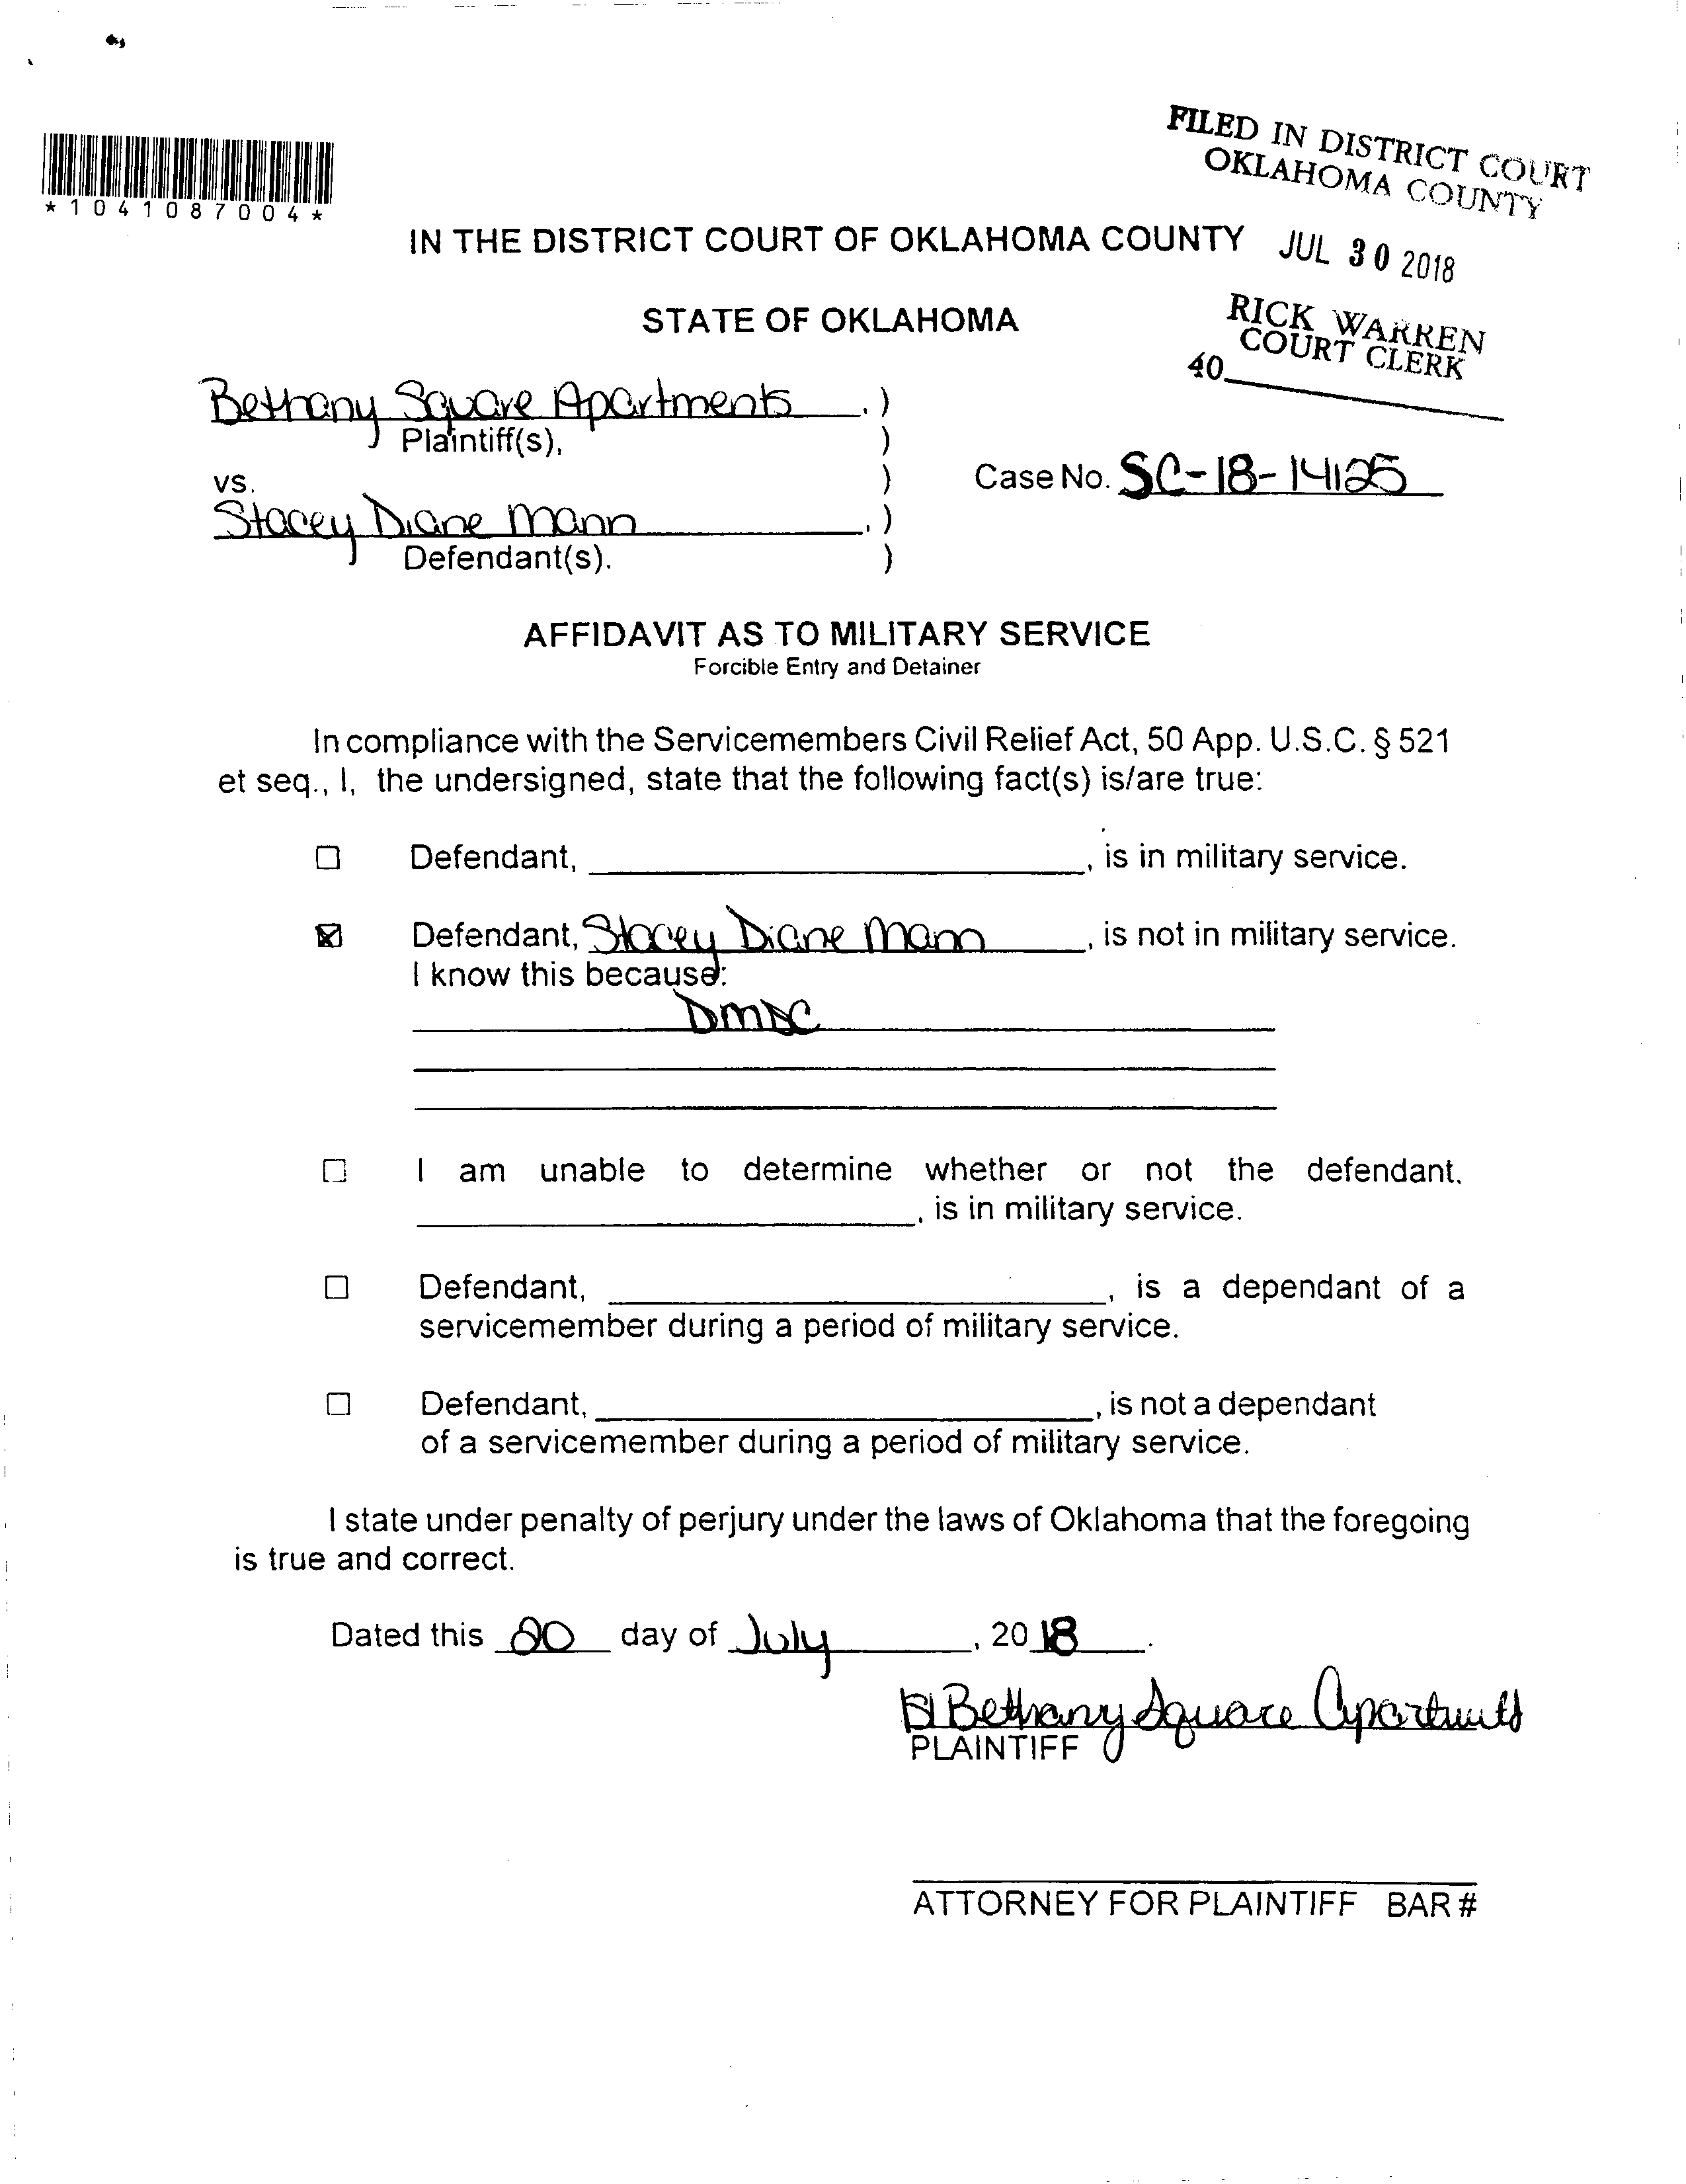 FILED IN DISTRICT COURT
OKLAHOMA COUNTY
*1041087004*
IN THE DISTRICT COURT OF OKLAHOMA COUNTY
JUL 30 2018
STATE OF OKLAHOMA
RICK WARREN
COURT CLERK
40
Bethany Square Apartments , )
Plaintiff(s), )
vs. ) Case No. SC-18-14125
Stacey Diane Mann , )
Defendant(s). )
AFFIDAVIT AS TO MILITARY SERVICE
Forcible Entry and Detainer
In compliance with the Servicemembers Civil Relief Act, 50 App. U.S.C. § 521
et seq., I, the undersigned, state that the following fact(s) is/are true:
☐ Defendant, , is in military service.
☒ Defendant, Stacey Diane Mann , is not in military service.
I know this because:
DMDC
☐ I am unable to determine whether or not the defendant,
, is in military service.
☐ Defendant, , is a dependant of a
servicemember during a period of military service.
☐ Defendant, , is not a dependant
of a servicemember during a period of military service.
I state under penalty of perjury under the laws of Oklahoma that the foregoing
is true and correct.
Dated this 20 day of July , 20 18 .
Bethany Square Apartments
PLAINTIFF
ATTORNEY FOR PLAINTIFF BAR #